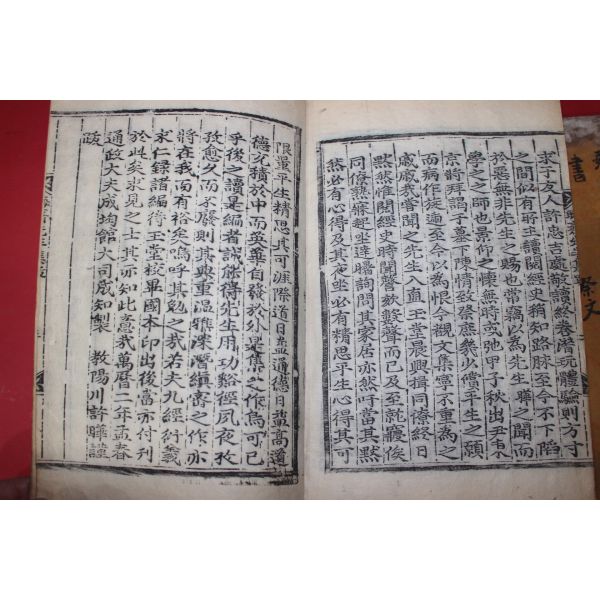 求于友人許忠吉處敬讀終卷潛玩體驗則方寸
之間似有所主讀閱經史稍知路脉至今不下陷
於惡無非先生之賜也常竊以爲先生聯之聞而
學之之師也景仰之懷無時或弛甲子秋出尹
京將拜謁子墓下陳情致祭庶幾少償平生之願
而病作旋逥至今以爲恨今觀文集寧不重爲之
感感我嘗聞之先生入直玉堂晨興揖同僚終日
默然惟閱經史時聞謦欬聲而已及至就寢俟
同僚熟寐起坐達曙詢問其家居亦然吁當其默
然必有心得及其夜坐必有精思平生心得其可
限量平生精思其可涯際道日益道德日益高道
德充積於中而英華自發於外是集之作烏可已
乎後之讀是編者誠能得先生用功谿徑夙夜孜
孜愈久而不廢則其興重溫雅深潛縝密之作亦
將在我而有裕矣嗚呼其勉之哉若夫九經衍義
求仁錄諸編待玉堂校畢國本印出後當亦付刊
於此矣求見之士其亦知此意哉萬曆二年孟春
通政大夫成均館大司成知製 教陽川許曄謹
跋